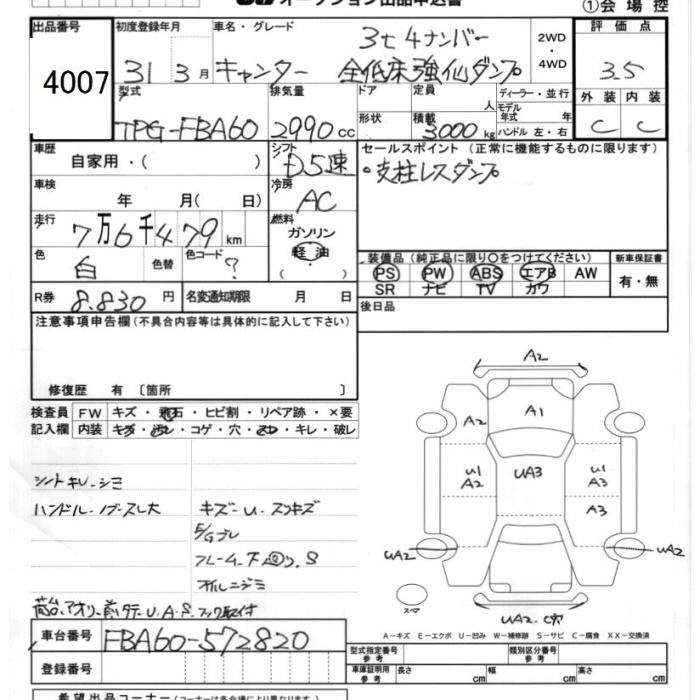 オークション出品申込書
①会場控
出品番号 4007
初度登録年月 31 3月
車名・グレード 3t 4ナンバー
キャンター 全低床強化ダンプ
2WD・4WD
評価点 3.5
外装 C 内装 C
型式 TPG-FBA60
排気量 2990cc
ドア
形状
定員 人
積載 3000kg
ディーラー・並行
モデル年式 年
ハンドル 左・右
車歴 自家用・( )
シフト D5速
セールスポイント(正常に機能するものに限ります)
・支柱レスダンプ
車検 年 月( 日)
冷房 AC
走行 7万6千479km
燃料 ガソリン 軽油
色 白 色替 色コード ?
装備品(純正品に限り○をつけてください)
PS PW ABS エアB AW
SR ナビ TV カワ
新車保証書 有・無
R券 8.830円
名変通知期限 月 日
後日品
注意事項申告欄(不具合内容等は具体的に記入して下さい)
修復歴 有〔箇所 〕
検査員記入欄
FW キズ・飛石・ヒビ割・リペア跡・×要
内装 キズ・汚レ・コゲ・穴・スレ・キレ・破レ
シートキレ・シミ
ハンドル・ノブスレ大
キズ-U・スリキズ
フレーム・下回り.S
オイルニジミ
A2
A2 A1
U1 A2 UA3 U1 A3
A3
UA2 UA2
スペア
UA2.C穴
A-キズ E-エクボ U-凹み W-補修跡 S-サビ C-腐食 XX-交換済
車台番号 FBA60-572820
登録番号
型式指定番号 参考
類別区分番号 参考
車庫証明用 参考 長さ cm 幅 cm 高さ cm
希望出品コーナー(コーナーは会場により異なります)